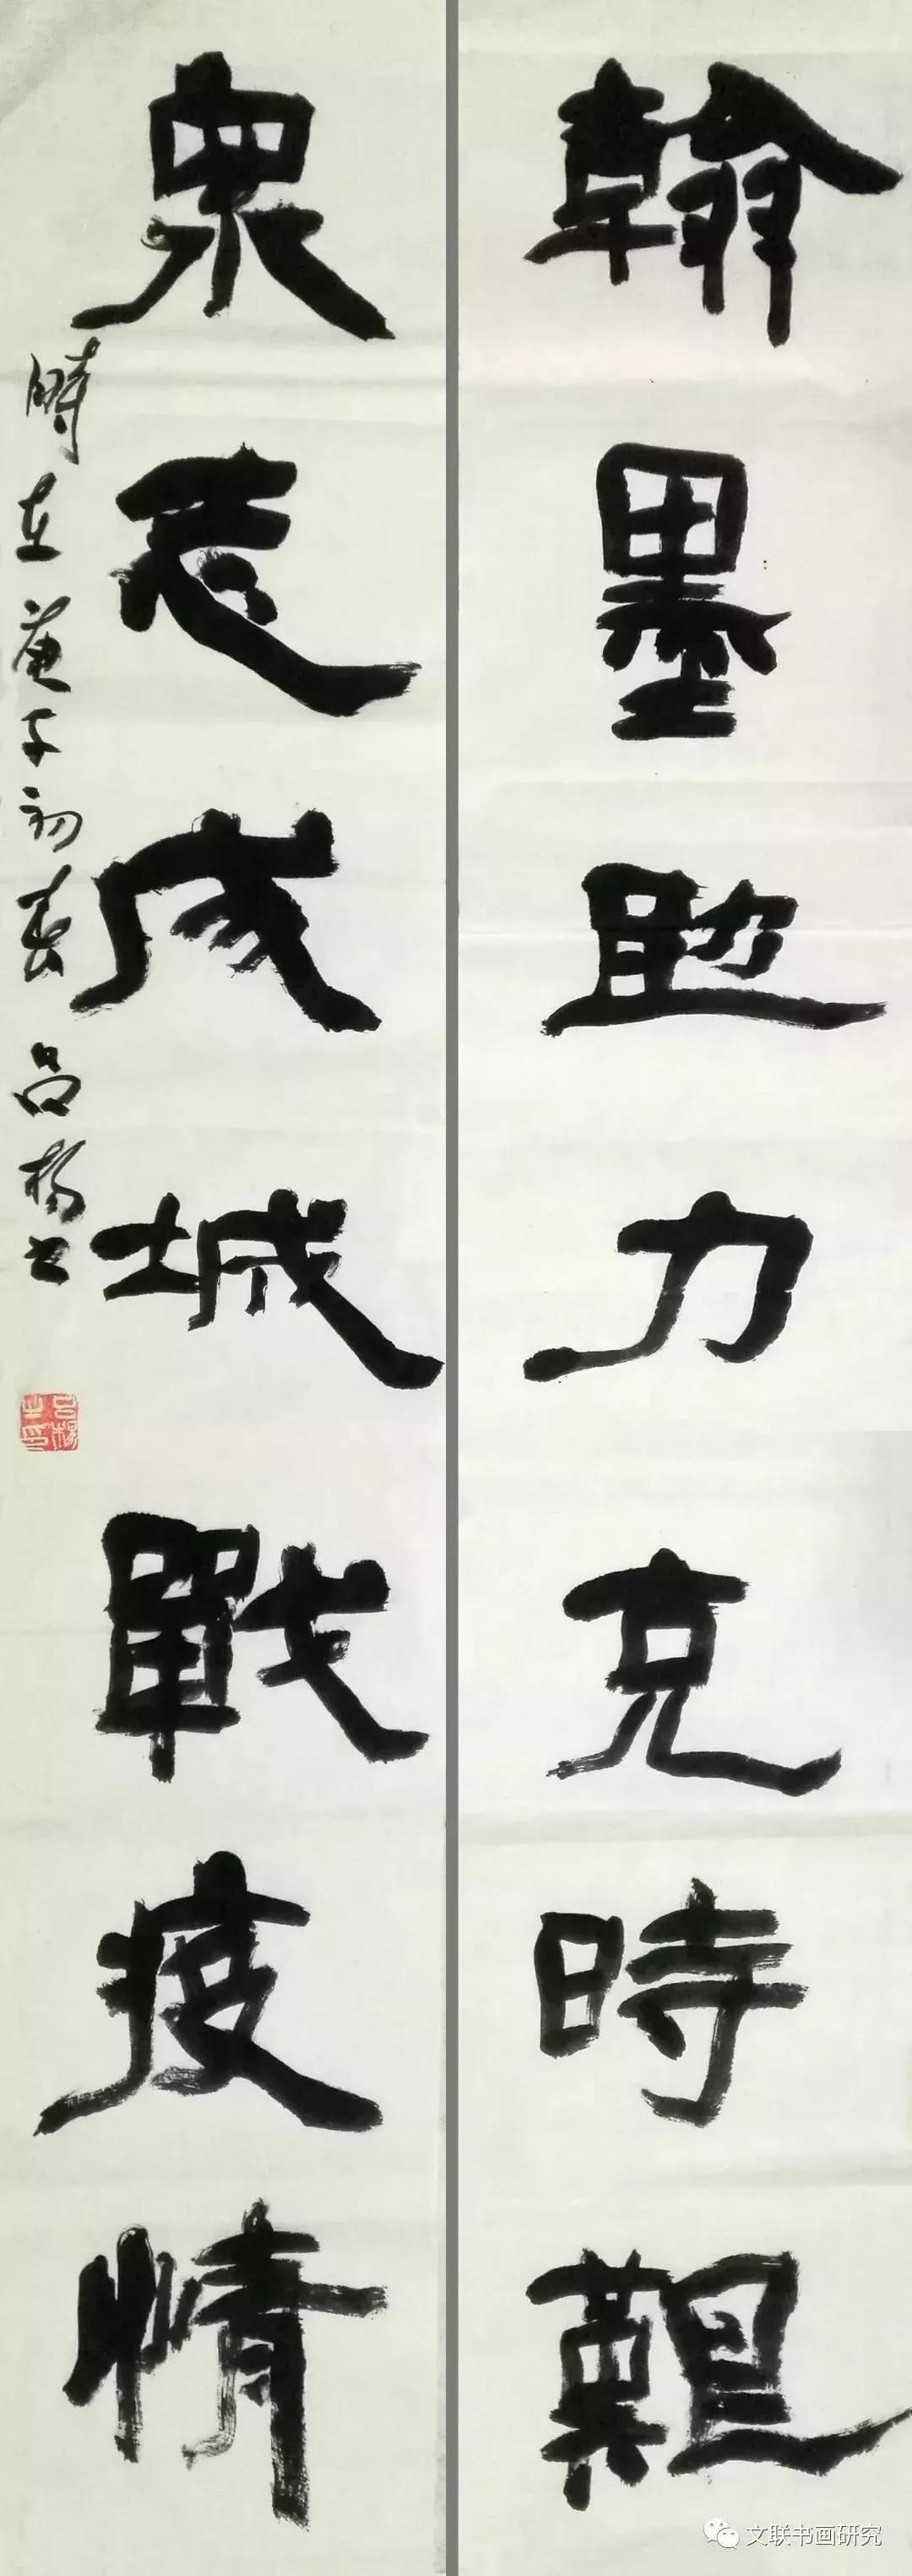 翰墨助力克時艱
衆志成城戰疫情
時在庚子初春 呂楊書
呂楊之印
文联书画研究